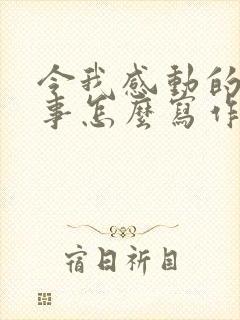 令我感動的
事怎麼寫作
宿日祈目